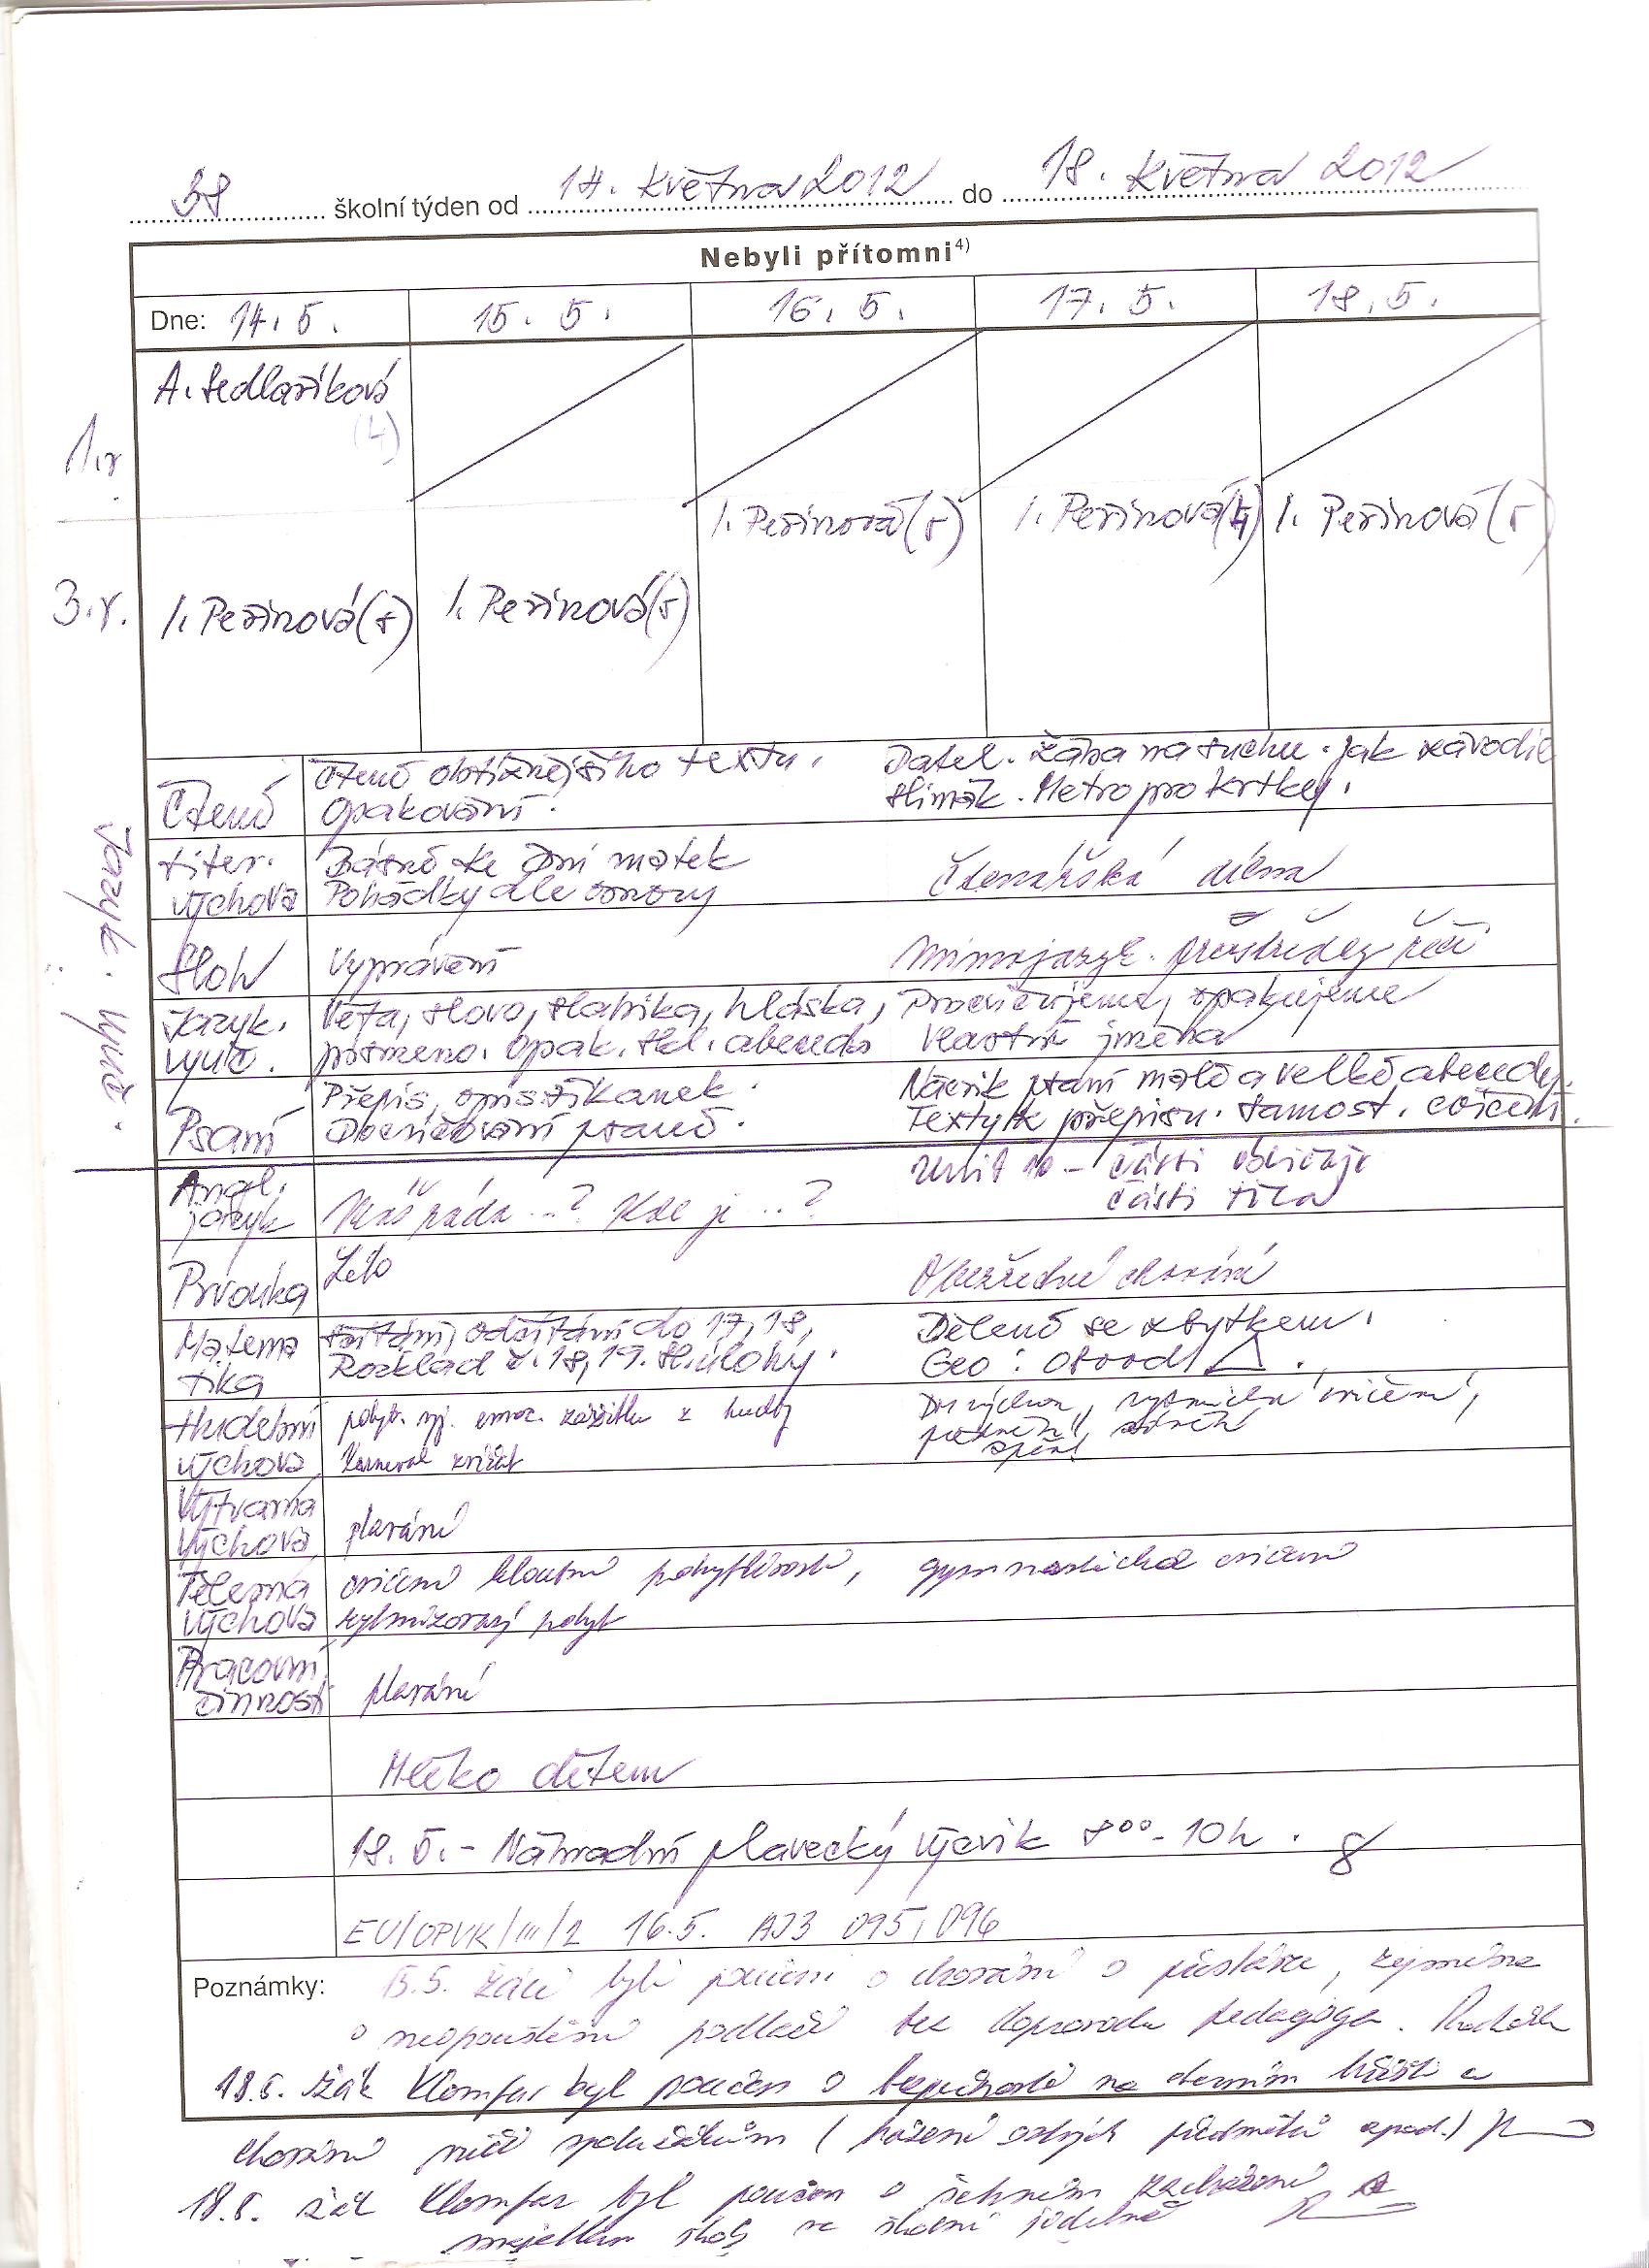 38 školní týden od 14. května 2012 do 18. května 2012
Nebyli přítomni4)
Dne: 14. 5. 15. 5. 16. 5. 17. 5. 18. 5.
A. Sedlaříková
(4)
1.r
I. Peřinová (5) I. Peřinová (4) I. Peřinová (5)
3.r. I. Peřinová (5) I. Peřinová (5)
Jazyk. výuč.
Čtení
Čtení obtížnějšího textu. Datel. Žába na suchu. Jak závodil
Opakování. slimák. Metro pro krtky.
Liter. výchova
Básně ke Dni matek Čtenářská dílna
Pohádky dle osnovy
Sloh
Vyprávění Mimojazyk. prostředky řeči
Jazyk. vyuč.
Věta, slovo, slabika, hláska, Procvičujeme, opakujeme
písmeno. Opak. vel. abeceda Vlastní jména
Psaní
Přepis, opis říkanek. Nácvik psaní malé a velké abecedy.
Docvičování psaní. Texty k přepisu. Samost. cvičení.
Angl. jazyk
Máš rád ...? Kde je ...? Unit 10 - části obličeje
části těla
Prvouka
Léto Ohleduplné chování
Matematika
Sčítání, odčítání do 17, 18, Dělení se zbytkem.
Rozklad č. 18, 19. Sl. úlohy. Geo: obvod △.
Hudební výchova
pohyb. vyj. emoc. zážitku z hudby rytmická cvičení,
Karneval zvířat
Výtvarná výchova
plavání
Tělesná výchova
cvičení kloubní pohyblivosti, gymnastická cvičení
rytmizovaný pohyb
Pracovní činnosti
plavání
Mléko dětem
18. 5. - Náhradní plavecký výcvik 8⁰⁰ - 10 h.
EU/OPVK/III/2 16.5. AJ3 095, 096
Poznámky: 15.5. žáci byli poučeni o chování o přestávce, zejména
o neopouštění podlaží bez doprovodu pedagoga.
18.5. žák Klomfar byl poučen o bezpečnosti na dětském hřišti a
chování vůči spolužákům (házení ostrých předmětů apod.)
18.5. žák Klomfar byl poučen o šetrném zacházení s
majetkem školy ve školní jídelně